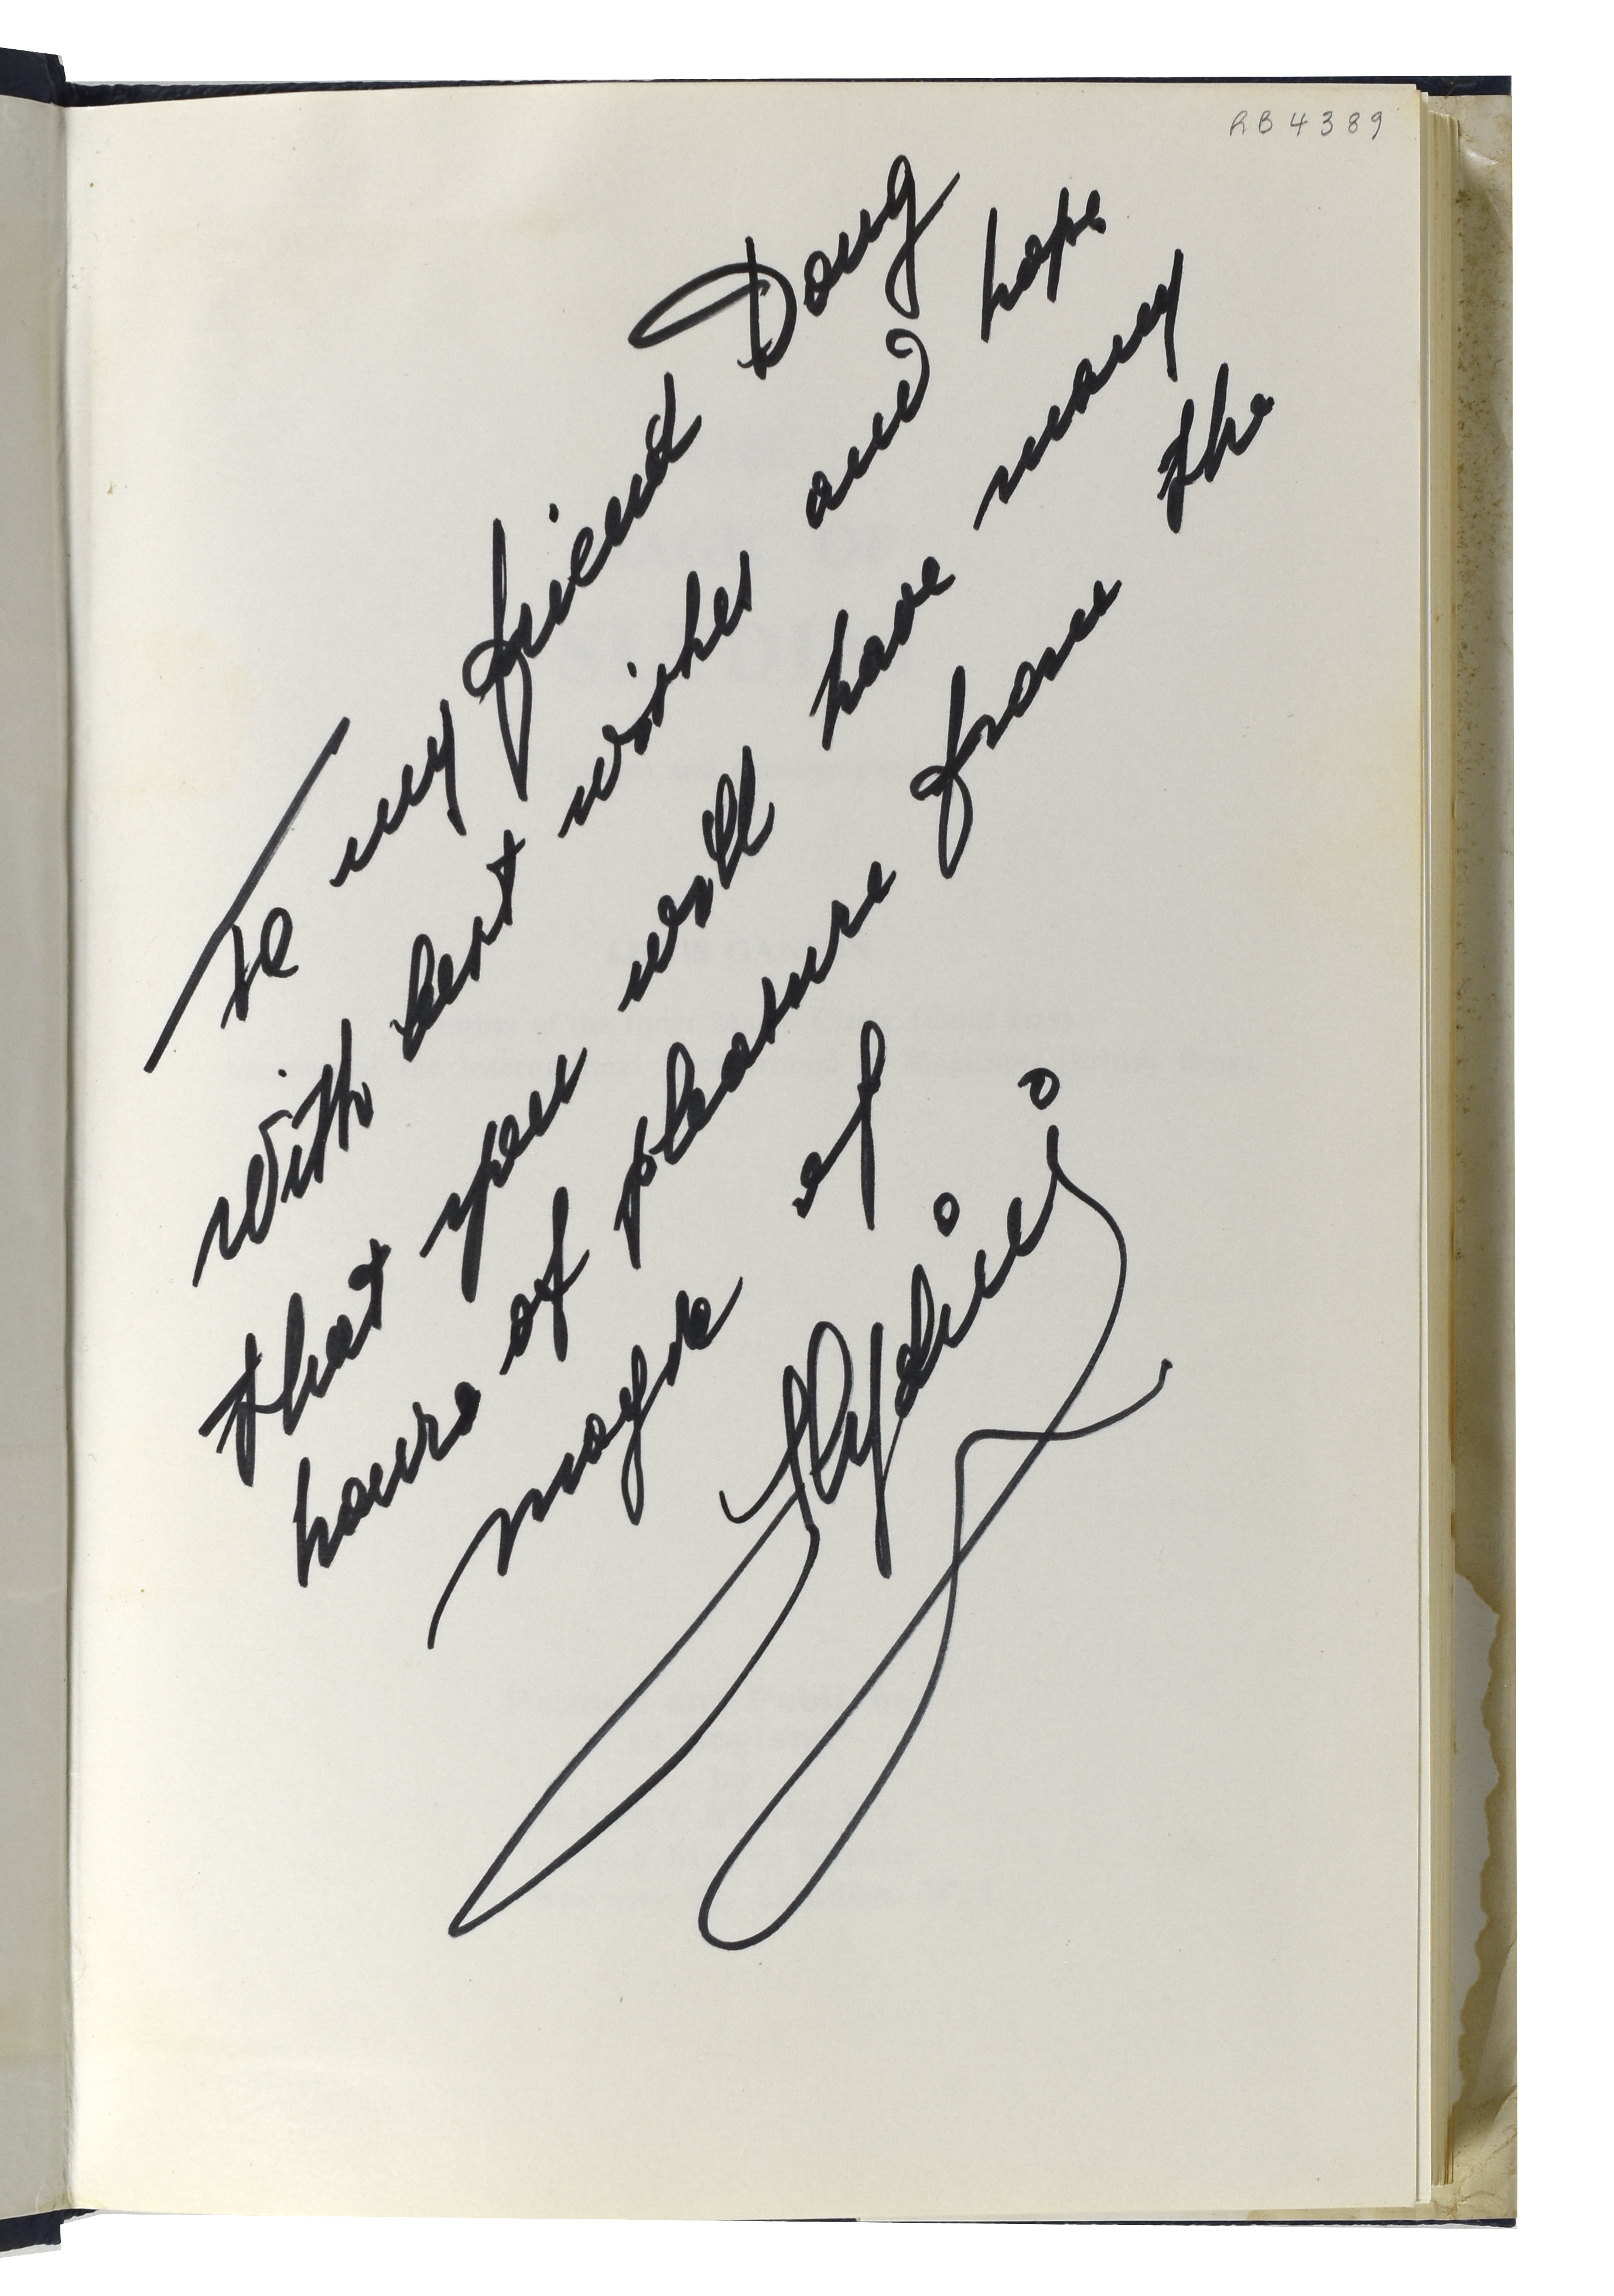 RB4389
To my friend Doug
with best wishes and hope
that you will have many
hours of pleasure from the
magic of
Slydini